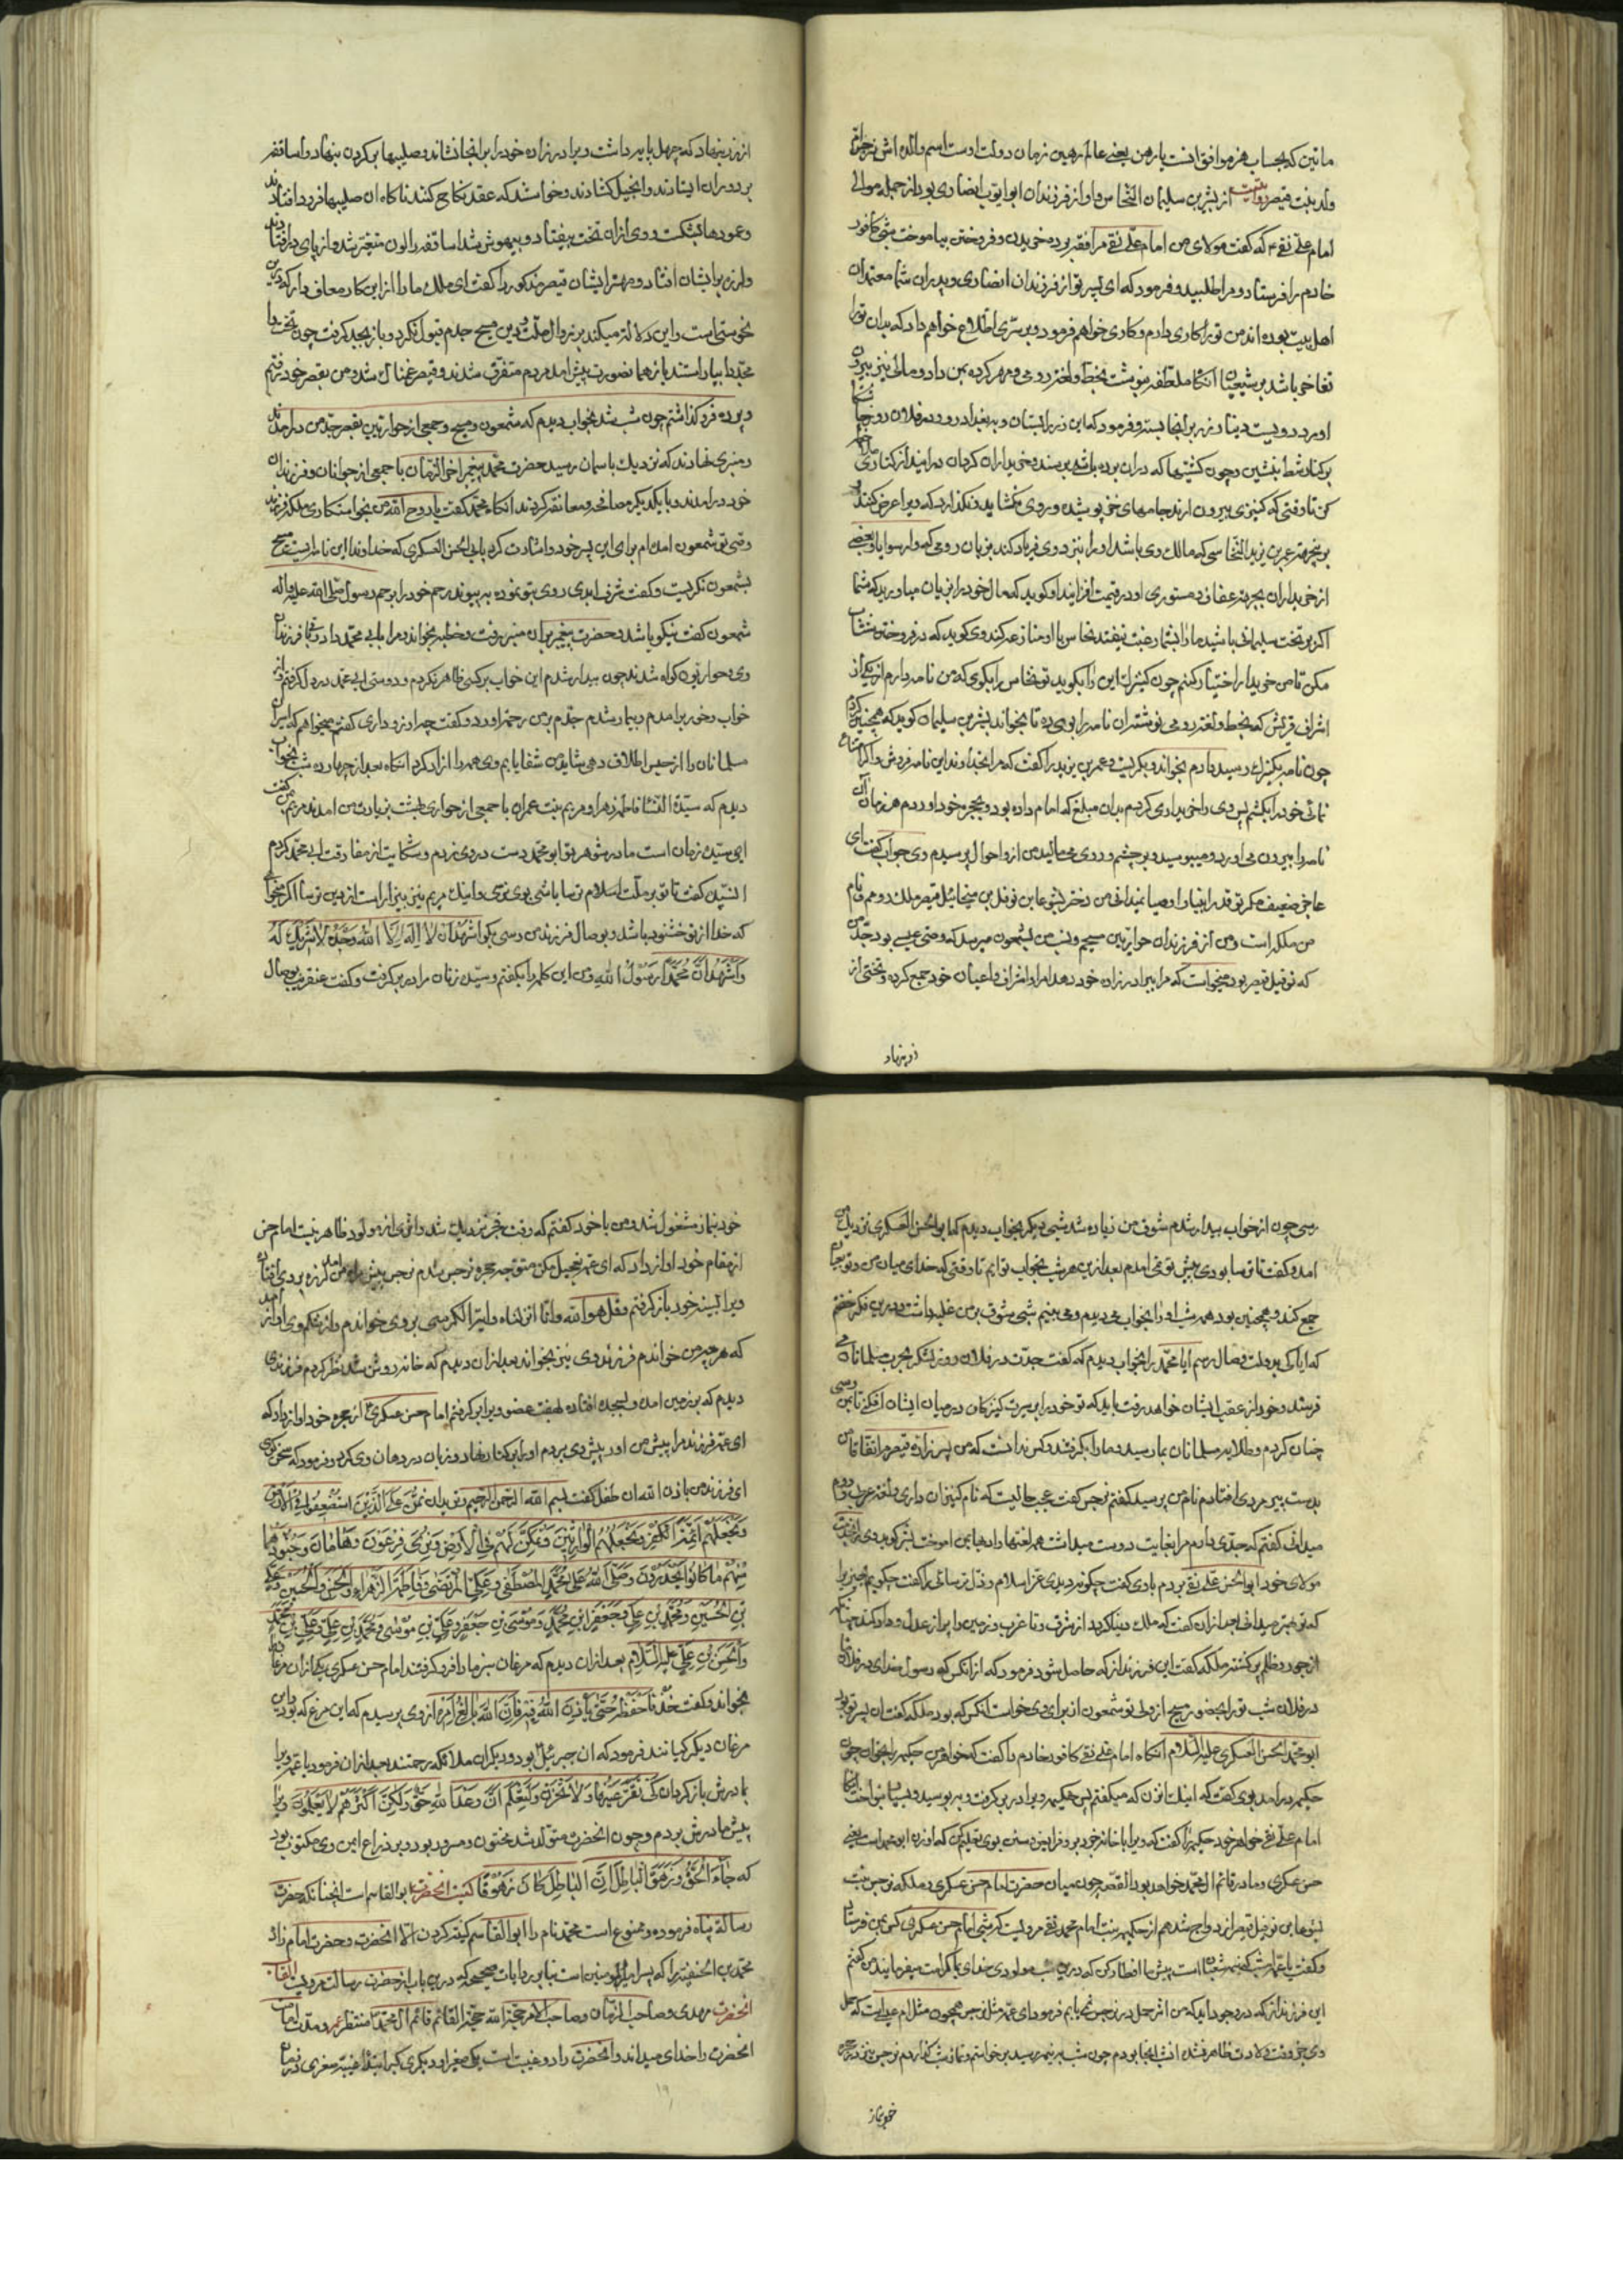 ماتین که بحساب هزموافق است یا رهن یعنی عالم رهین زمان دولت اوست اسم والده اش نرجس
ولد بنت قیصر روایت از بشر بن سلیمان النخاس و او از فرزندان ابوایوب انصاری بود از جمله موالی
امام علی نقی ع که گفت مولای من امام علی نقی مرا فقه برده خریدن و فروختن بیاموخت شبی کافور
خادم را فرستاد و مرا طلبید و فرمود که ای بشر تو از فرزندان انصاری و پدران شما معتمدان
اهل بیت بوده اند من تو را کاری دارم و کاری خواهم فرمود و بر سری اطلاع خواهم داد که بدان تو را
تفاخر باشد بر شیعیان انگاه ملطفه بنوشت بخط و لغت رومی و مهر کرده بمن داد و مالی نیز بیرون
اورد دویست دینار زر بر انجا بسته و فرمود که این زر را بستان و به بغداد رو و در فلان روز چاشتگاه
بر کنار شط بنشین و چون کشتیها که در ان برده باشد برسند و خریداران کردان درایند از کناری
کن تا وقتی که کنیزی بیرون ارند جامهای خز پوشیده و روی نگشاید و نگذارد که ویرا عرض کنند
بر بنجهٔ عمر بن یزید النخاسی که مالک وی باشد او را بنزد وی فریاد کند بزبان رومی که وا رسوایا و بعضی
از خریداران بجهة عفاف و مستوری او در قیمت افزایند او گوید که مال خود را بزیان میاورید که شما
اگر بر تخت سلیمانی باشید مرا با شما رغبت نیفتد نخاس با او منازعه کند وی گوید که در فروختن من شتاب
مکن تا من خریدار اختیار کنم چون کنیزک این را بگوید تو نخاس را بگوی که من نامه دارم از یکی از
اشراف قریش که بخط و لغت رومی نوشته ان نامه را بوی ده تا بخواند بشر بن سلیمان گوید که همچنین کردم
چون نامه بکنیزک رسید دادم بخواند و بگریست و عمر بن یزید را گفت که مرا بخداوند این نامه فروش و اگر امتناع
نمائی خود را بکشم پس وی را خریداری کردم بدان مبلغ که امام داده بود و بحجره خود اوردم هر زمان ان
نامه را بیرون می اورد و میبوسید و بر چشم و روی می مالید من از و احوال پرسیدم وی جواب گفت ای
عاجز ضعیف مگر تو قدر انبیا و اوصیا نمیدانی من دختر یشوعا بن نوفل بن میخائیل قیصر ملک رومم و نام
من ملکه است و من از فرزندان حواریین مسیحم و نسب من بشمعون میرسد که وصی عیسی بود جدّ من
که نوفیل قیصر بود میخواست که مرا ببرادرزاده خود دهد امرا و اشراف و اعیان خود جمع کرده و تختی از
زر بنهاد
از زر بنهاد که چهل پایه داشت و برادرزاده خود را بر انجا نشاند و صلیبها بر کردن بنهاد و اساقفه
بر دوران ایستادند و انجیل گشادند و خواستند که عقد نکاح کنند ناگاه ان صلیبها فرود افتادند
و عمودها بشکست و وی از ان تخت بیفتاد و بیهوش شد اساقفه را لون متغیر شد و از پای درافتادند
و لرزه بر ایشان افتاد و مهتر ایشان قیصر مذکور را گفت ای ملک ما را از این کار معاف دار که این
نحوستهاست و این دلالة میکند بر زوال ملت و دین مسیح جدم قبول نکرد و باز بجد گرفت چون تخت را
مجددا بیاراستند باز همان صورت پیش امد مردم متفرق شدند و قیصر غمناک شد و من بقصر خود رفتم
و پرده فرو گذاشتم چون شب شد بخواب دیدم که شمعون و مسیح و جمعی از حواریین بقصر جد من درامدند
و منبری نهادند که نزدیک باسمان رسید حضرت محمد پیغمبر اخر الزمان با جمعی از جوانان و فرزندان
خود درامدند و با یکدیگر مصافحه و معانقه کردند انگاه محمد گفت یا روح الله من بخواستکاری ملکه فرزند
وصی تو شمعون امده ام برای این پسر خود و اشارت کرد بابی الحسن العسکری که خداوند این نامه است مسیح
بشمعون نگریست و گفت شرف ابدی روی بتو نموده به پیوند رحم خود را برحم رسول صلی الله علیه واله
شمعون گفت نیکو باشد و حضرت پیغمبر بران منبر رفت و خطبه بخواند و مرا بابی محمد داد و با فرزندان
وی و حواریون گواه شدند چون بیدار شدم این خواب بر کسی ظاهر نکردم و دوستی ابی محمد در دل گرفتم و از
خواب و خور برامدم و بیمار شدم جدم بر من رحم اورد و گفت چه ارزو داری گفتم میخواهم که اسیران
مسلمانان را از حبس اطلاق دهی شاید من شفا یابم وی همه را ازاد کرد انگاه بعد از چهارده شب بخواب
دیدم که سیدة النساء فاطمه زهرا و مریم بنت عمران با جمعی از حواری بهشت بزیارت من امدند مریم مرا گفت
این سیدۀ زنان است مادر شوهر تو ابو محمد دست در وی زدم و شکایت از مفارقت ابی محمد کردم
السیده گفت تا تو بر ملت اسلام ترسا باشی بوی نرسی و اینک مریم نیز بیزار است از دین ترسا اگر میخواهی
که خدا از تو خشنود باشد و بوصال فرزند من رسی بگو اَشْهَدُ اَنْ لا اِلٰهَ اِلَّا اللهُ وَحْدَهُ لا شَرِیكَ لَهُ
وَاَشْهَدُ اَنَّ مُحَمَّدًا رَسُولُ اللهِ من این کلمه را بگفتم و سیدۀ زنان مرا در بر گرفت و گفت عنقریب بوصال
رسی چون از خواب بیدار شدم شوق من زیاده شد شبی دیگر بخواب دیدم که ابو الحسن العسکری نزدیک من
امده گفت تا ترسا بودی پیش تو نمی امدم بعد از این هر شب بخواب تو ایم تا وقتی که خدای میان من و تو بهم
جمع کند و همچنین بود همه شب او را بخواب می دیدم و می بینم شبی شوق بر من غلبه داشت و در این فکر خفتم
که ایا کی بدولت وصال رسم ابا محمد را بخواب دیدم که گفت جدّت در فلان روز لشکر بحرب مسلمانان می
فرستد و خود از عقب ایشان خواهد رفت باید که تو خود را بر سیرت کنیزکان در میان ایشان افکنی تا بمن رسی
چنان کردم و طلایه مسلمانان بما رسید و ما را بگرفتند و کس ندانست که من پسرزاده قیصرم اتفاقا من
بدست پیر مردی افتادم نام من پرسید گفتم نرجس گفت عجب حالیست که نام کنیزان داری و لغت عرب و روم
میدانی گفتم که جدی دارم مرا بغایت دوست میداشت همه لغتها و ادبها بمن اموخت بشر گوید وی را نزدیک
مولای خود ابو الحسن علی نقی بردم با وی گفت چگونه دیدی عز اسلام و ذل ترسائی را گفت چگویم چیزی را
که تو بهتر میدانی بعد از ان گفت که ملک دنیا گیرد از شرق تا غرب و زمین را پر از عدل و داد کند چنانکه
از جور و ظلم پر گشته ملکه گفت این فرزند از که حاصل شود فرمود که از انکس که رسول خدای در فلان ماه
در فلان شب تو را بحضور مسیح از وی تو شمعون از برای وی خواست انکس که بود ملکه گفت ان پسر تو بود
ابو محمد الحسن العسکری علیه السلام انگاه امام علی نقی کافور خادم را گفت که خواهر من حکیمه را بخوان چون
حکیمه درامد بوی گفت که اینک ان زن که میگفتم پس حکیمه ویرا در بر گرفت و ببوسید و بسیار بنواخت انگاه
امام علی نقی خواهر خود حکیمه را گفت که ویرا با خانه خود بر و فرایض و سنن بوی تعلیم کن که او زن ابو محمد است یعنی
حسن عسکری و مادر قائم ال محمد خواهد بود القصه چون میان حضرت امام حسن عسکری و ملکه نرجس بنت
یشوعا بن نوفیل قیصر ازدواج شد هم از حکیمه بنت امام محمد تقی مرویست که شبی امام حسن عسکری کس بمن فرستاد
و گفت یا عمه امشب که نیمه شعبان است پیش ما افطار کن که در این شب مولودی خدای بما کرامت میفرماید من گفتم
این فرزند از که در وجود اید که من اثر حمل در نرجس نمی یابم فرمود ای عمه مثل نرجس همچون مثل ام عیسی است که حمل
وی جز وقت ولادت ظاهر نشد ان شب انجا بودم چون شب به نیمه رسید برخواستم و نماز شب گذاردم نرجس نیز در حجره
خود بنماز
خود بنماز مشغول شد و من با خود گفتم که وقت فجر نزدیک شد و اثری از مولود ظاهر نیست امام حسن
از مقام خود اواز داد که ای عمه تعجیل مکن متوجه حجره نرجس شدم نرجس پیش من امد لرزه بر وی افتاد
ویرا بسینه خود باز گرفتم و قل هو الله و انا انزلناه و ایة الکرسی بر وی خواندم و از شکم وی اواز امد
که هر چه من خواندم فرزند وی نیز بخواند بعد از ان دیدم که خانه روشن شد نظر کردم فرزندی
دیدم که بر زمین امد و بسجده افتاده بهفت عضو ویرا برگرفتم امام حسن عسکری از حجره خود اواز داد که
ای عمه فرزند مرا پیش من اور پیش وی بردم او را بر کنار نهاد و زبان در دهان وی کرد و فرمود که سخن گوی
ای فرزند من باذن الله ان طفل گفت بسم الله الرحمن الرحیم و نرید ان نَمُنَّ عَلَی الَّذِینَ اسْتُضْعِفُوا فِی الْاَرْضِ
وَنَجْعَلَهُمْ اَئِمَّةً وَنَجْعَلَهُمُ الْوَارِثِینَ وَنُمَكِّنَ لَهُمْ فِی الْاَرْضِ وَنُرِیَ فِرْعَوْنَ وَهَامَانَ وَجُنُودَهُمَا
مِنْهُمْ مَا كَانُوا یَحْذَرُونَ وَصَلَّی اللهُ عَلَی مُحَمَّدٍ الْمُصْطَفَی وَعَلِیٍّ الْمُرْتَضَی وَفَاطِمَةَ الزَّهْرَاءِ وَالْحَسَنِ وَالْحُسَیْنِ وَعَلِیِّ
بْنِ الْحُسَیْنِ وَمُحَمَّدِ بْنِ عَلِیٍّ وَجَعْفَرِ ابْنِ مُحَمَّدٍ وَمُوسَی بْنِ جَعْفَرٍ وَعَلِیِّ بْنِ مُوسَی وَمُحَمَّدِ بْنِ عَلِیٍّ وَعَلِیِّ بْنِ مُحَمَّدٍ
وَالْحَسَنِ بْنِ عَلِیٍّ علیه السلام بعد از ان دیدم که مرغان سبز ما را فرو گرفتند امام حسن عسکری یکی از ان مرغان
بخواند و گفت خُذْهُ فَاحْفَظْهُ حَتَّی یَأْذَنَ اللهُ فِیهِ فَاِنَّ اللهَ بَالِغُ اَمْرِهِ از وی پرسیدم که این مرغ که بود و این
مرغان دیگر کیانند فرمود که ان جبرئیل بود و دیگران ملائکه رحمتند بعد از ان فرمود یا عمه ویرا
بمادرش باز گردان كَیْ تَقَرَّ عَیْنُهَا وَلَا تَحْزَنَ وَلِتَعْلَمَ اَنَّ وَعْدَ اللهِ حَقٌّ وَلَكِنَّ اَكْثَرَهُمْ لَا یَعْلَمُونَ ویرا
پیش مادرش بردم و چون انحضرت متولد شد مختون و مسرور بود و بر ذراع ایمن وی مکتوب بود
که جَاءَ الْحَقُّ وَزَهَقَ الْبَاطِلُ اِنَّ الْبَاطِلَ كَانَ زَهُوقًا کنیت انحضرت ابو القاسم است انچنانکه حضرت
رسالة پناه فرموده و ممنوع است محمد نام را ابو القاسم کنیة کردن الا انحضرت و حضرت امام زاده
محمد بن الحنفیة را که پسر امیر المومنین است بنابر روایات صحیحه که در این باب از حضرت رسالت مرویست القاب
انحضرت مهدی و صاحب الزمان و صاحب الامر حجة الله حجة القائم قائم ال محمد منتظر عمر و مدت امامت
انحضرت را خدای میداند و انحضرت را دو غیبت است یکی صغری و دیگری کبری ابتداء غیبة صغری در زمان
۱۹